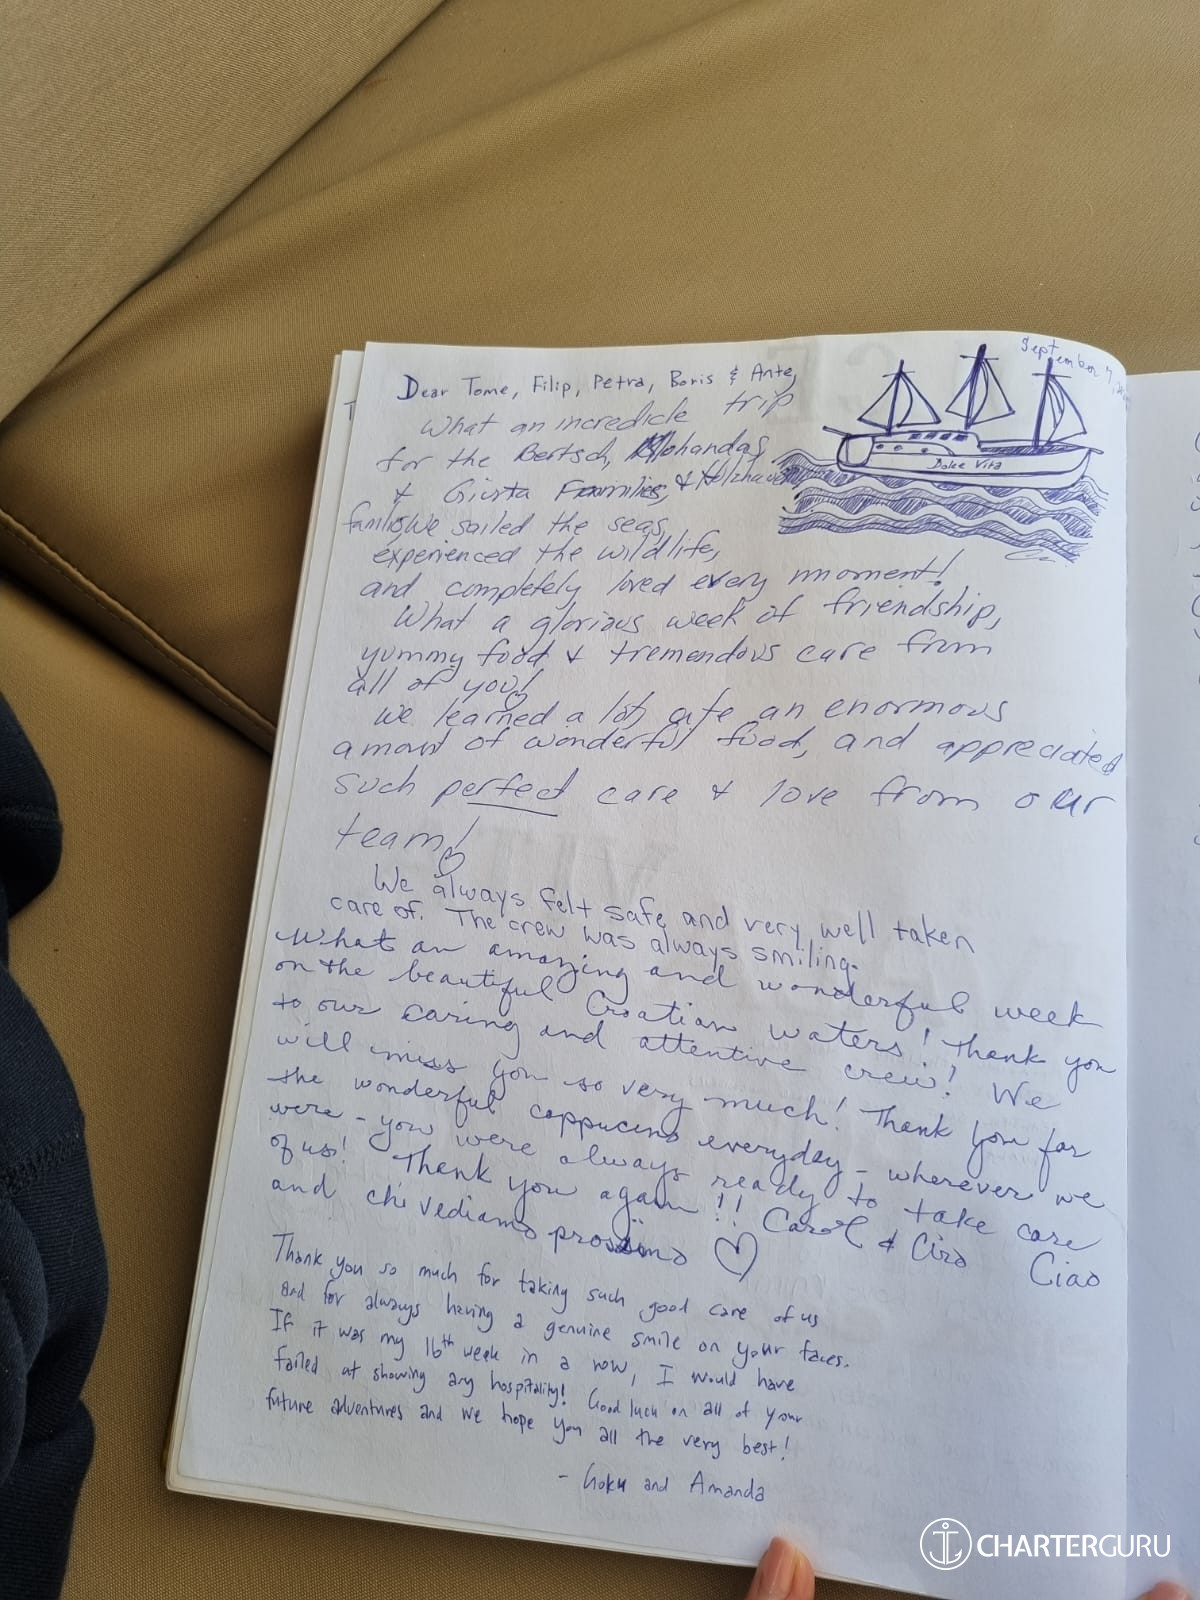 September 7, 
Dear Tome, Filip, Petra, Boris & Ante,
What an incredicle trip
for the Bertsch, Mohandas,
& Giusta Families, & Holzhauer
families We sailed the seas,
experienced the wildlife,
and completely loved every moment!
What a glorious week of friendship,
yummy food & tremendous care from
all of you!
We learned a lot, ate an enormous
amount of wonderful food, and appreciated
such perfect care & love from our
team!
We always felt safe and very well taken
care of. The crew was always smiling.
What an amazing and wonderful week
on the beautiful Croatian waters! Thank you
to our caring and attentive crew! We
will miss you so very much! Thank you for
the wonderful cappucino everyday - wherever we
were - you were always ready to take care
of us! Thank you again!! Carol & Ciro
and chi vediamo prossimo ♡ Ciao
Thank you so much for taking such good care of us
and for always having a genuine smile on your faces.
If it was my 16th week in a row, I would have
failed at showing any hospitality! Good luck on all of your
future adventures and we hope you all the very best!
- Goku and Amanda
Dolce Vita
CHARTERGURU